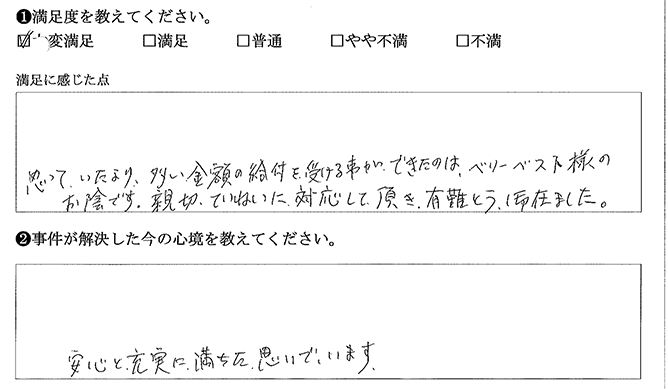 ❶満足度を教えてください。
☑大変満足 □満足 □普通 □やや不満 □不満
満足に感じた点
思っていたより、多い金額の給付を受ける事ができたのは、ベリーベスト様の
お陰です。親切、ていねいに対応して頂き、有難とう、御在ました。
❷事件が解決した今の心境を教えてください。
安心と、充実に、満ちた、思いでいます。